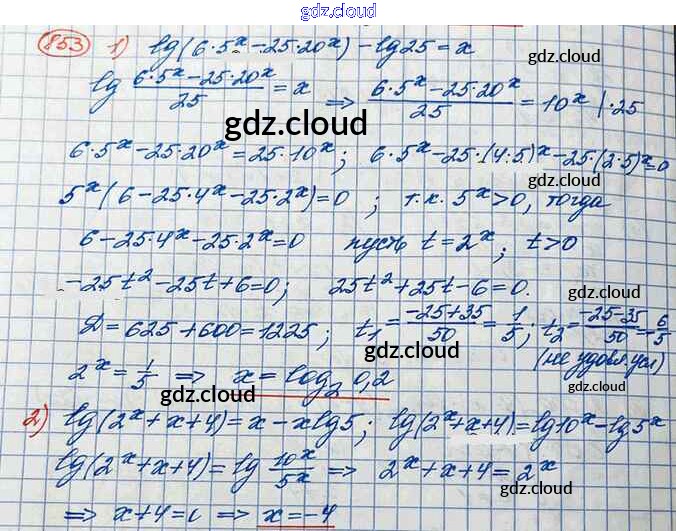 gdz.cloud
853 1) lg(6·5ˣ-25·20ˣ)-lg25=x
gdz.cloud
lg (6·5ˣ-25·20ˣ)/25 = x ⇒ (6·5ˣ-25·20ˣ)/25 = 10ˣ |·25
gdz.cloud
6·5ˣ-25·20ˣ=25·10ˣ; 6·5ˣ-25·(4·5)ˣ-25·(2·5)ˣ=0
gdz.cloud
5ˣ(6-25·4ˣ-25·2ˣ)=0 ; т.к. 5ˣ>0, тогда
6-25·4ˣ-25·2ˣ=0 пусть t=2ˣ; t>0
-25t²-25t+6=0; 25t²+25t-6=0.
gdz.cloud
Д=625+600=1225; t₁=(-25+35)/50=1/5; t₂=(-25-35)/50=-6/5
(не удовл. усл)
2ˣ=1/5 ⇒ x=log₂0,2
gdz.cloud
2) lg(2ˣ+x+4)=x-xlg5; lg(2ˣ+x+4)=lg10ˣ-lg5ˣ
lg(2ˣ+x+4)=lg 10ˣ/5ˣ ⇒ 2ˣ+x+4=2ˣ
gdz.cloud
⇒ x+4=0 ⇒ x=-4